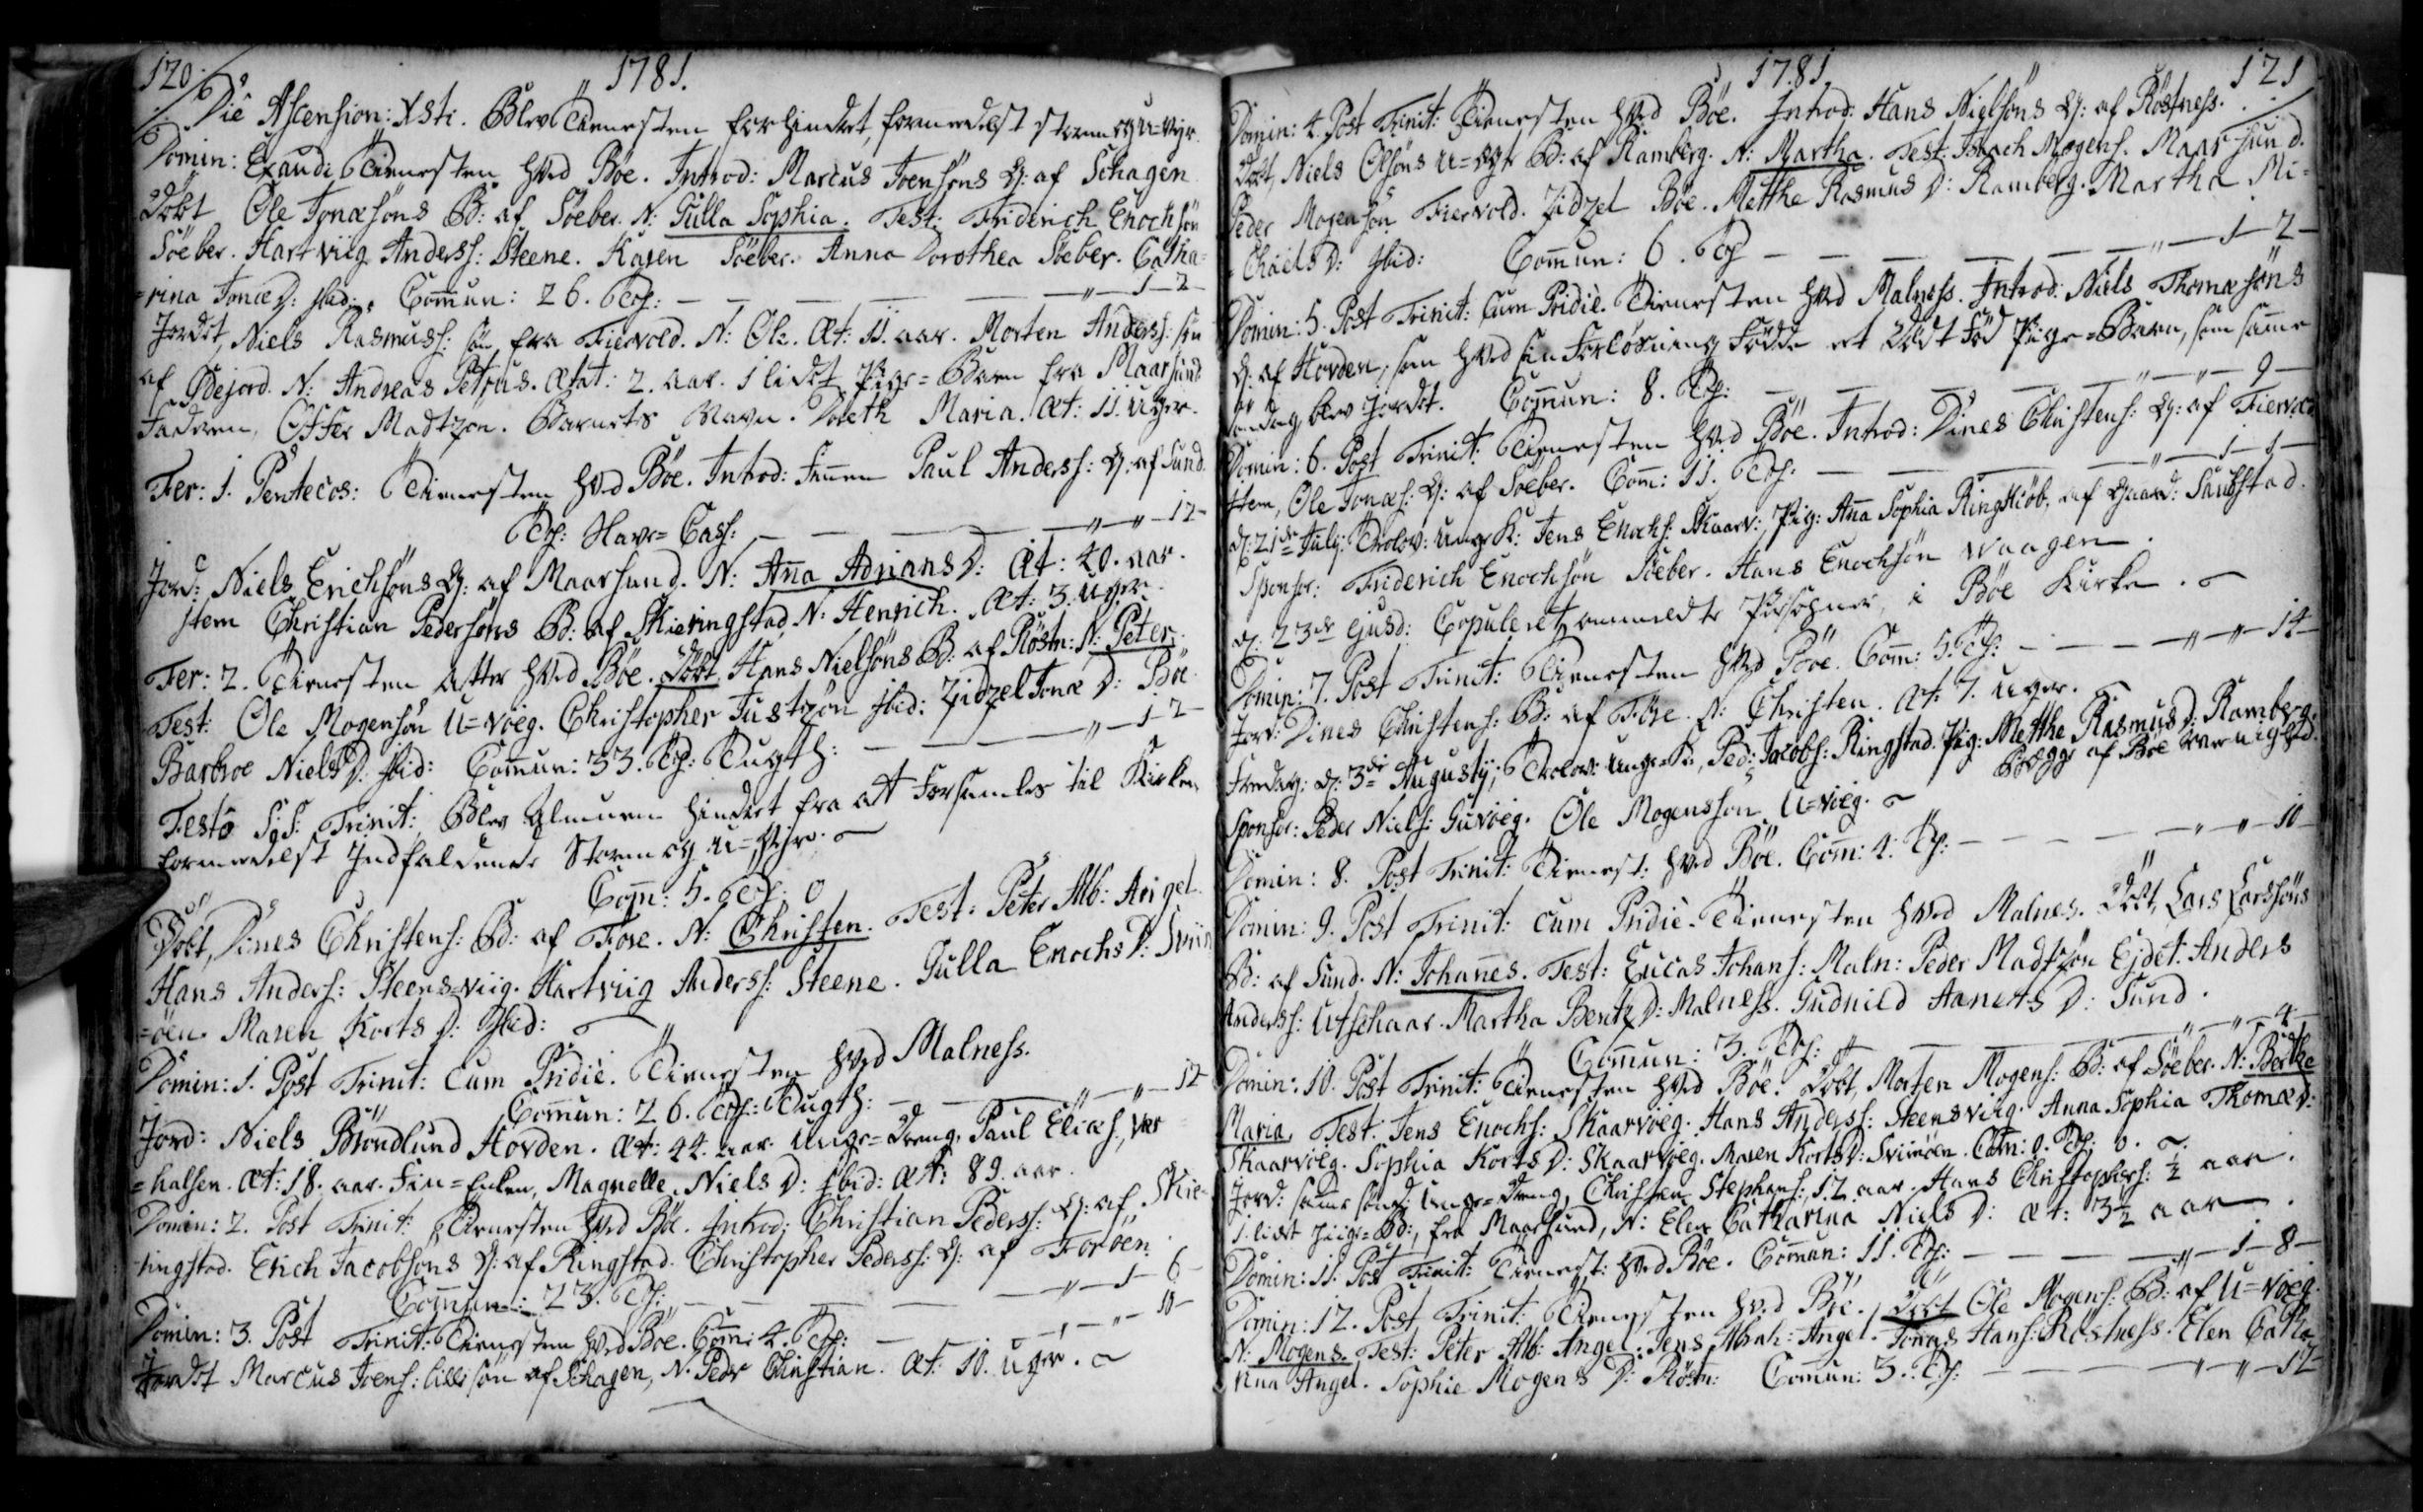 120.
1781.
Die Ascension: Xsti. Blev Tienesten forhindret, formedelst storm og U=vejr.
Domin: Exaudi Tienesten hved Böe. Introd: Marcus Joensöns Q: af Schagen
Döbt Ole Jonæsöns B: af Söeber. N: Gulla Sophia. Test: Friderich Enochsön
Söeber. Hartviig Anderss: Steene. Karen Söeber. Anna Dorothea Söeber. Catha=
=rina Jonæ D: Ibid: Com̄un: 26. Tsh: — — — — „ — 1 — 2 —
Jordet, Niels Rasmuss: sön fra Fiervold. N: Ole. Æt: 11. aar. Morten Anderss: sön
af Bejord. N: Andreas Petrus. Ætat: 2. aar. 1 lidet Pige=Barn fra Maarsund
Faderen, Offer Madtzön. Barnets Navn. Doreth Maria. Æt: 11. Uger.
Fer: 1. Pentecos: Tienesten hved Böe. Introd: Paul Anderss: Q: af Sund.
Tsh: Have=Cass: — — — „ — „ — 12 —
Jord: Niels Erichsöns Q: af Maarsund. N: Anna Adrians D: Æt: 40. aar.
Item Christian Pedersöns B: af Skieringstad N: Henrich. Æt: 3. Uger.
Fer: 2. Tienesten Atter hved Böe. Döbt, Hans Nielsöns B: af Röstn: N: Peter.
Test: Ole Mogensön U=voeg. Christopher Justzön Ibid: Zidzel Jonæ D: Böe.
Barbroe Niels D: Ibid: Com̄un: 33. Tsh: Tugth: — — — „ — 1 — 2 —
Festo S:S: Trinit: Blev Almuen hindret fra att forsamles til Kirken
formedelst Indfaldende Storm og U=Vejr.
Com̄: 5. Tsh: 0
Döbt, Dines Christens: B: af Före. N: Christen. Test: Peter Alb: Angel.
Hans Anderss: Steens=viig. Hartviig Anderss: Steene. Gulla Enochs D: Svin
=öen. Maren Korts D: Ibid:
Domin: 1. Post Trinit: Cum Pridie. Tienesten hved Malness.
Com̄un: 26. Tsh: Tugth: — — — „ — „ — 12
Jord: Niels Bröndlund Hovden. Æt: 44. aar. Unge=Dreng, Paul Eliæs: Ves
=halsen. Æt: 18. aar. Fin=Enken, Magnelle Niels D: Ibid: Æt: 89. aar.
Domin: 2. Post Trinit: Tienesten hved Böe. Introd: Christian Pederss: Q: af Skie=
ringstad. Erich Jacobsöns Q: af Ringstad. Christopher Pederss: Q: afForöen.
Com̄un: 23. Tsh: — — — — „ — 1 — 6 —
Domin: 3. Post Trinit: Tienesten hved Böe. Com̄: 4. Tsh: — — „ — „ — 10 —
Jordet Marcus Joens: lille sön af Schagen, N. Peder Christian. Æt: 10. Uger.
1781.
121
Domin: 4. Post Trinit: Tienesten hved Böe. Introd: Hans Nielsöns Q: af Röstness.
Döbt, Niels Olsöns B: af Ramberg. N: Martha. Test: Isach Mogens: Maarsund.
Peder Mogensön Fiervold. Zidzel Böe. Metthe Rasmus D: Ramberg. Martha Mi=
=chaels D: Ibid: Com̄un: 6. Tsh — — — — „ — 1 — 2 —
Domin: 5. Post Trinit: Cum Pridie. Tienesten hved Malness. Introd: Niels Thomæsöns
Q: af Hovden, som hved sin Forlösning födde et dödt föd Pige=Barn, som samme
Söndag blev Jordet. Com̄un: 8. Tsh: — — — „ — „ — 9 —
Domin: 6. Post Trinit: Tienesten hved Böe. Introd: Dines Christens: Q: af Fiervold
Item, Ole Jonæs: Q: af Söeber. Com̄: 11. Tsh: — — — „ — 1 — 1 —
d: 21de July: Trolov: Unge K: Jens Enochs: Skaarv: Pig: An̄a Sophia Ringkiöb, af Gaard: Sandstad.
Sponsor: Friderich Enochsön Söeber. Hans Enochsön Waagen.
d: 23de Ejusd: Copuleret ommeldte Persohner, i Böe Kirke.
Domin: 7. Post Trinit: Tienesten hved Böe. Com̄: 5. Tsh: — — — „ — „ — 14 —
Jord: Dines Christens: B: af Före. N: Christen. Æt: 7. Uger.
Fredag: d: 3de Augusty, Trolov: Unge=K: Ped: Jacobs: Ringstad. Pig: Metthe Rasmus D: Ramberg.
Begge af Böe Menighed.
Sponsor: Peder Niels: Guvoeg. Ole Mogensson U=voeg.
Domin: 8. Post Trinit: Tienest: hved Böe. Com̄: 4. Tsh: — — — „ — „ — 10 —
Domin: 9. Post Trinit: cum Pridie. Tienesten hved Malnes. Döbt, Lars Larssöns
B: af Sund. N: Johan̄es. Test: Lucas Johans: Maln: Peder Madtzön Ejdet. Anders
Anderss: Utschaar. Martha Bentz D: Malness. Gudnild Aanerts D: Sund.
Com̄un: 3. Tsh: — — — „ — „ — 4 —
Domin: 10. Post Trinit: Tienesten hved Böe. Döbt, Morten Mogens: B: af Söeber. N: Berthe
Maria. Test: Jens Enochs: Skaarvoeg. Hans Anderss: Steensviig. Anna Sophia Thomæ D:
Skaarvoeg. Sophia Korts D: Skaarvoeg. Maren Korts D: Svinöen. Com̄: 0. Tsh: 0.
Jord: samme Sönd: Unge=Dreng, Christen Stephens: 12 aar. Hans Christophers: ½ aar.
1 lidet Piige=B:, fra Maarsund, N: Elen Catharina Niels D: Æt: 3½ aar.
Domin: 11. Post Trinit: Tienest: hved Böe. Com̄un: 11. Tsh: — — — „ — 1 — 8 —
Domin: 12. Post Trinit: Tienesten hved Böe. Döbt Ole Mogens: B: af U=voeg.
N: Mogens. Test: Peter Alb: Angel. Jens Abrah: Angel. Jonas Hans: Röstness. Elen Catha
rina Angel. Sophie Mogens D: Röstn: Com̄un: 3. Tsh: — — — „ — „ — 12